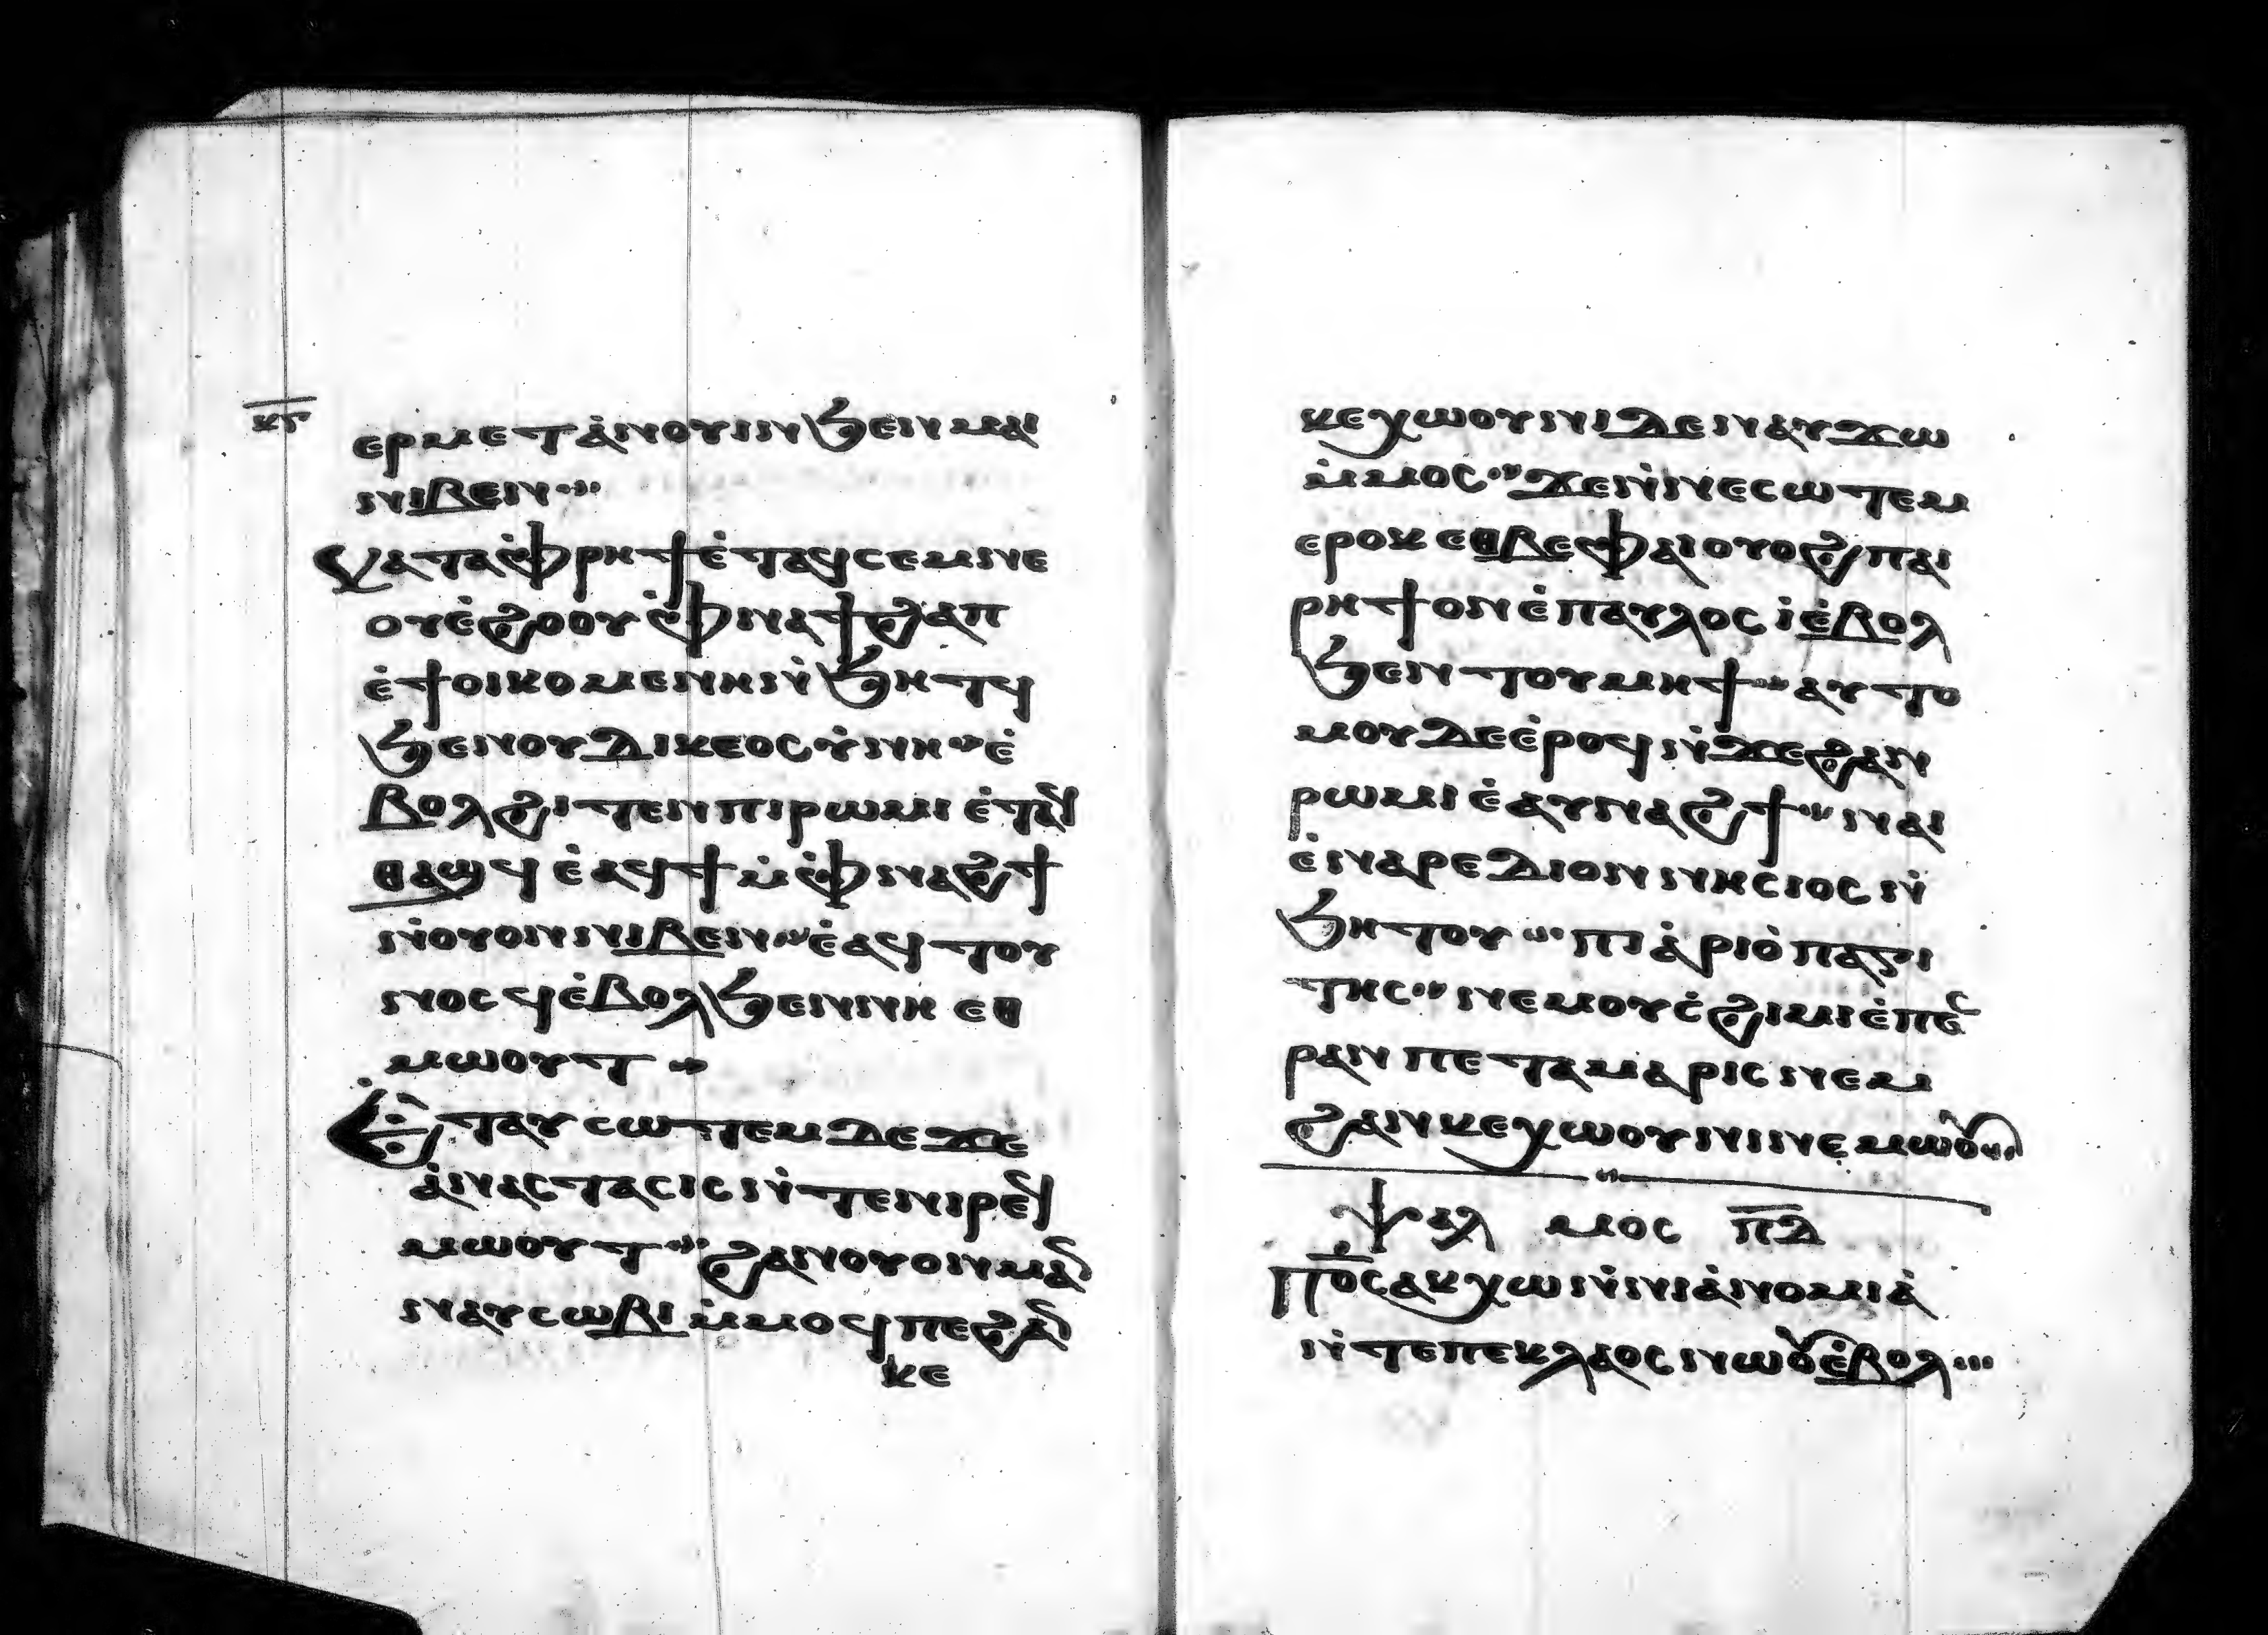 ⲕ̅ⲋ̅
ⲉⲣⲙⲉⲧⲁ̀ⲛⲟⲩⲓⲛ ϧⲉⲛ ⲙⲁⲓ
ⲛⲓⲃⲉⲛ
ⲕⲁⲧⲁ ⲫ̀ⲣⲏϯ ⲉ̀ⲧⲁϥⲥⲉⲙⲛⲉ
ⲟⲩⲉ̀ϩⲟⲟⲩ ⲉ̀ⲫⲛⲁϯϩⲁⲡ
ⲉ̀ϯⲟⲓⲕⲟⲙⲉⲛⲏ ⲛ̀ϧⲏⲧϥ
ϧⲉⲛⲟⲩⲇⲓⲕⲉⲟⲥⲩ̀ⲛⲏ ⲉ̀
ⲃⲟⲗϩⲓⲧⲉⲛ ⲡⲓⲣⲱⲙⲓ ⲉ̀ⲧⲁϥ
ⲑⲁϣϥ ⲉ̀ⲁϥϯ ⲙ̀ⲫ̀ⲛⲁϩϯ
ⲛ̀ⲟⲩⲟⲛ ⲛⲓⲃⲉⲛ ⲉ̀ⲁϥⲧⲟⲩ
ⲛⲟⲥϥ ⲉ̀ⲃⲟⲗϧⲉⲛ ⲛⲏ ⲉⲑ
ⲙⲱⲟⲩⲧ
ⲉ̀ⲧⲁⲩⲥⲱⲧⲉⲙ ⲇⲉ ϫⲉ
ⲁ̀ⲛⲁⲥⲧⲁⲥⲓⲥ ⲛ̀ⲧⲉⲛⲓⲣⲉϥ
ⲙⲱⲟⲩⲧ ϩⲁⲛⲟⲩⲟⲛ ⲙⲁⲛ
ⲛⲁⲩⲥⲱⲃⲓ ⲙ̀ⲙⲟϥ ⲡⲉ ϩⲁⲛ
ⲕⲉ
ⲕⲉⲭⲱⲟⲩⲛⲓ ⲇⲉ ⲛⲁⲩϫⲱ
ⲙ̀ⲙⲟⲥ ϫⲉⲛ̀ⲛⲉⲥⲱⲧⲉⲙ
ⲉⲣⲟⲕ ⲉⲑⲃⲉ ⲫ̀ⲁⲓ ⲟⲩⲟϩ ⲡⲁⲓ
ⲣⲏϯ ⲟⲛ ⲉ̀ⲡⲁⲩⲗⲟⲥ ⲓ̀ ⲉ̀ⲃⲟⲗ
ϧⲉⲛ ⲧⲟⲩⲙⲏϯ ⲁⲩⲧⲟ
ⲙⲟⲩ ⲇⲉ ⲉ̀ⲣⲟϥ ⲛ̀ϫⲉ ϩⲁⲛ
ⲣⲱⲙⲓ ⲉ̀ⲁⲩⲛⲁϩϯ ⲛⲁⲓ
ⲉ̀ⲛⲁⲣⲉ ⲇⲓⲟⲛⲛⲏⲥⲓⲟⲥ ⲛ̀
ϧⲏⲧⲟⲩ ⲡⲓⲁ̀ⲣⲓⲟ̀ⲡⲁⲅⲓ
ⲧⲏⲥ ⲛⲉⲙ ⲟⲩⲥ̀ϩⲓⲙⲓ ⲉ̀ⲡⲉⲥ
ⲣⲁⲛ ⲡⲉ ⲧⲁⲙⲁⲣⲓⲥ ⲛⲉⲙ
ϩⲁⲛⲕⲉⲭⲱⲟⲩⲛⲓ ⲛⲉⲙⲱⲟⲩ
ⲯⲁⲗⲙⲟⲥ ⲡ̅ⲇ̅
ⲡ̅ⲟ̅ⲥ̅ ⲁⲕⲭⲱ ⲛ̀ⲛⲓⲁ̀ⲛⲟⲙⲓⲁ̀
ⲛ̀ⲧⲉ ⲡⲉⲕⲗⲁⲟⲥ ⲛⲱⲟⲩ ⲉ̀ⲃⲟⲗ